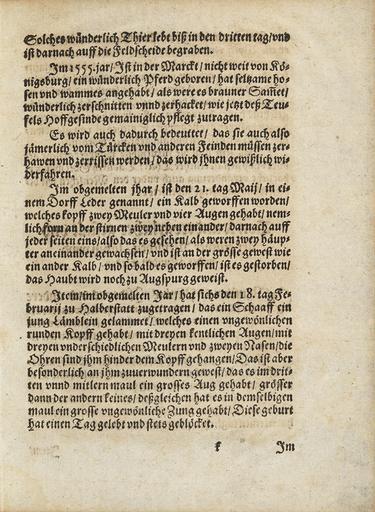 Solches wünderlich Thier lebt biß in den dritten tag/ vnd
ist darnach auff die Feldscheide begraben.
Im 1555. jar/ Jst in der Marckt/ nicht weit von Kö-
nigsburg/ ein wünderlich Pferd geboren/ hat seltzame ho-
sen vnd wammes angehabt/ als were es brauner Sam̃et/
wünderlich zerschnitten vnnd zerhacket/ wie jetzt deß Teu-
fels Hoffgesinde gemainiglich pflegt zutragen.
Es wird auch dadurch bedeuttet/ das sie auch also
jämerlich vom Türcken vnd anderen Feinden müssen zer-
hawen vnd zerrissen werden/ das wird jhnen gewißlich wi-
derfahren.
Jm obgemelten jhar/ ist den 21. tag Maij/ in ei-
nem Dorff Leder genannt/ ein Kalb geworffen worden/
welches kopff zwey Meuler vnd vier Augen gehabt/ nem-
lich forn an der stirnen zwey neben einander/ darnach auff
jeder seiten eins/ also das es gesehen/ als weren zwey häup-
ter an einander gewachsen/ vnd ist an der grösse gewest wie
ein ander Kalb/ vnd so bald es geworffen/ ist es gestorben/
das Haubt wird noch zu Augspurg geweist.
Jtem/ im obgemelten Jar/ hat sichs den 18. tag Fe-
bruarij zu Halberstatt zugetragen/ das ein Schaaff ein
jung Lämblein gelammet/ welches einen vngewönlichen
runden Kopff gehabt/ mit dreyen kentlichen Augen/ mit
dreyen vnderschiedlichen Meulern vnd zweyen Nasen/ die
Ohren sind jhm hinder dem Kopff gehangen/ Das ist aber
besonderlich an jhm zuuerwundern gewest/ das es im drit-
ten vnnd mitlern maul ein grosses Aug gehabt/ grösser
dann der andern keines/ deßgleichen hat es in demselbigen
maul ein grosse vngewönliche Zung gehabt/ Diese geburt
hat einen Tag gelebt vnd stets geblöcket.
k Jm